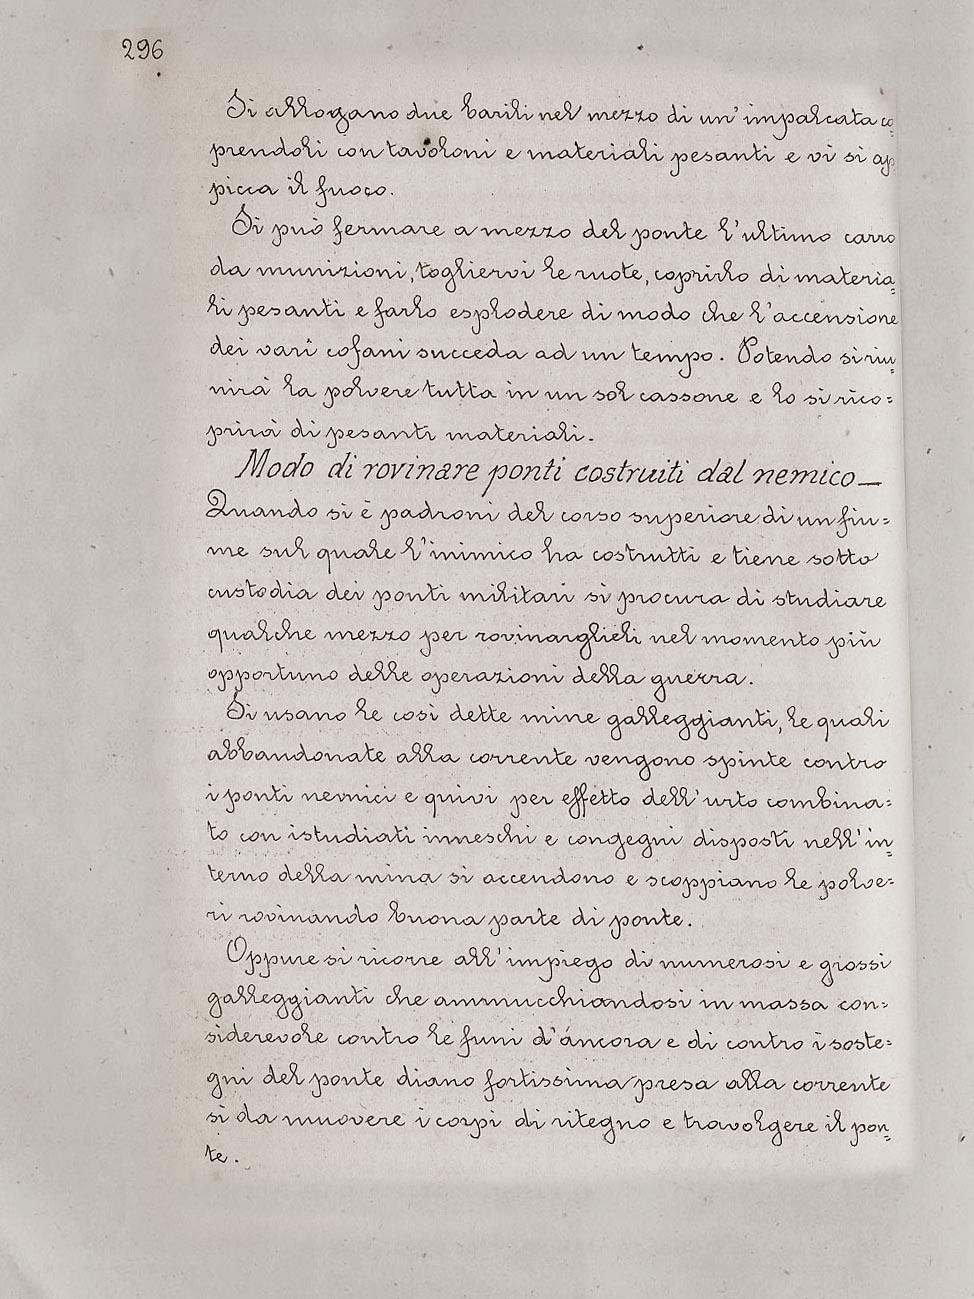 296
Si allogano due barili nel mezzo di un' impalcata co=
prendoli con tavoloni e materiali pesanti e vi si ap=
picca il fuoco.
Si può fermare a mezzo del ponte l'ultimo carro
da munizioni, togliervi le ruote, coprirlo di materia=
li pesanti e farlo esplodere di modo che l'accensione
dei varî cofani succeda ad un tempo. Potendo si riu=
nirà la polvere tutta in un sol cassone e lo si rico=
prirà di pesanti materiali.
Modo di rovinare ponti costruiti dal nemico —
Quando si è padroni del corso superiore di un fiu=
me sul quale l'inimico ha costrutti e tiene sotto
custodia dei ponti militari si procura di studiare
qualche mezzo per rovinarglieli nel momento più
opportuno delle operazioni della guerra.
Si usano le così dette mine galleggianti, le quali
abbandonate alla corrente vengono spinte contro
i ponti nemici e quivi per effetto dell'urto combina=
to con istudiati inneschi e congegni disposti nell'in=
terno della mina si accendono e scoppiano le polve=
ri rovinando buona parte di ponte.
Oppure si ricorre all'impiego di numerosi e grossi
galleggianti che ammucchiandosi in massa con=
siderevole contro le funi d'áncora e di contro i soste=
gni del ponte diano fortissima presa alla corrente
sì da muovere i corpi di ritegno e travolgere il pon=
te.